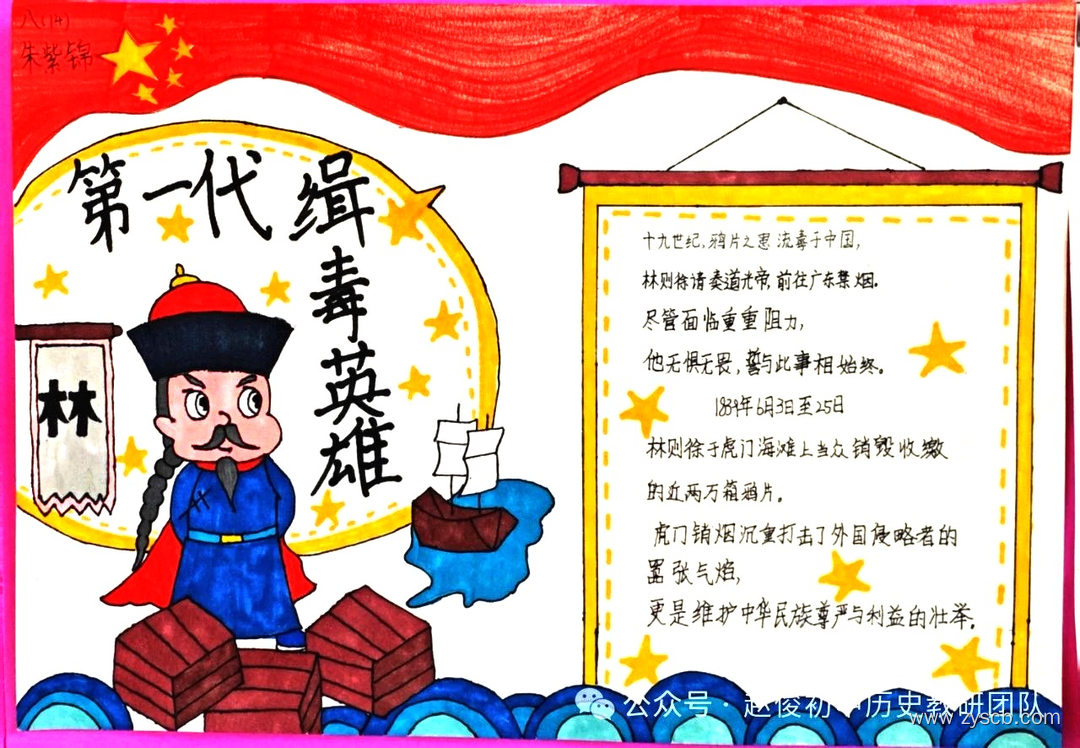 八(14)
朱紫锦
第一代缉
毒英雄
林
十九世纪,鸦片之患流毒于中国,
林则徐请奏道光帝前往广东禁烟。
尽管面临重重阻力,
他无惧无畏,誓与此事相始终。
1839年6月3日至25日
林则徐于虎门海滩上当众销毁收缴
的近两万箱鸦片。
虎门销烟沉重打击了外国侵略者的
嚣张气焰,
更是维护中华民族尊严与利益的壮举。
公众号·赵俊初中历史教研团队
www.zyscb.com